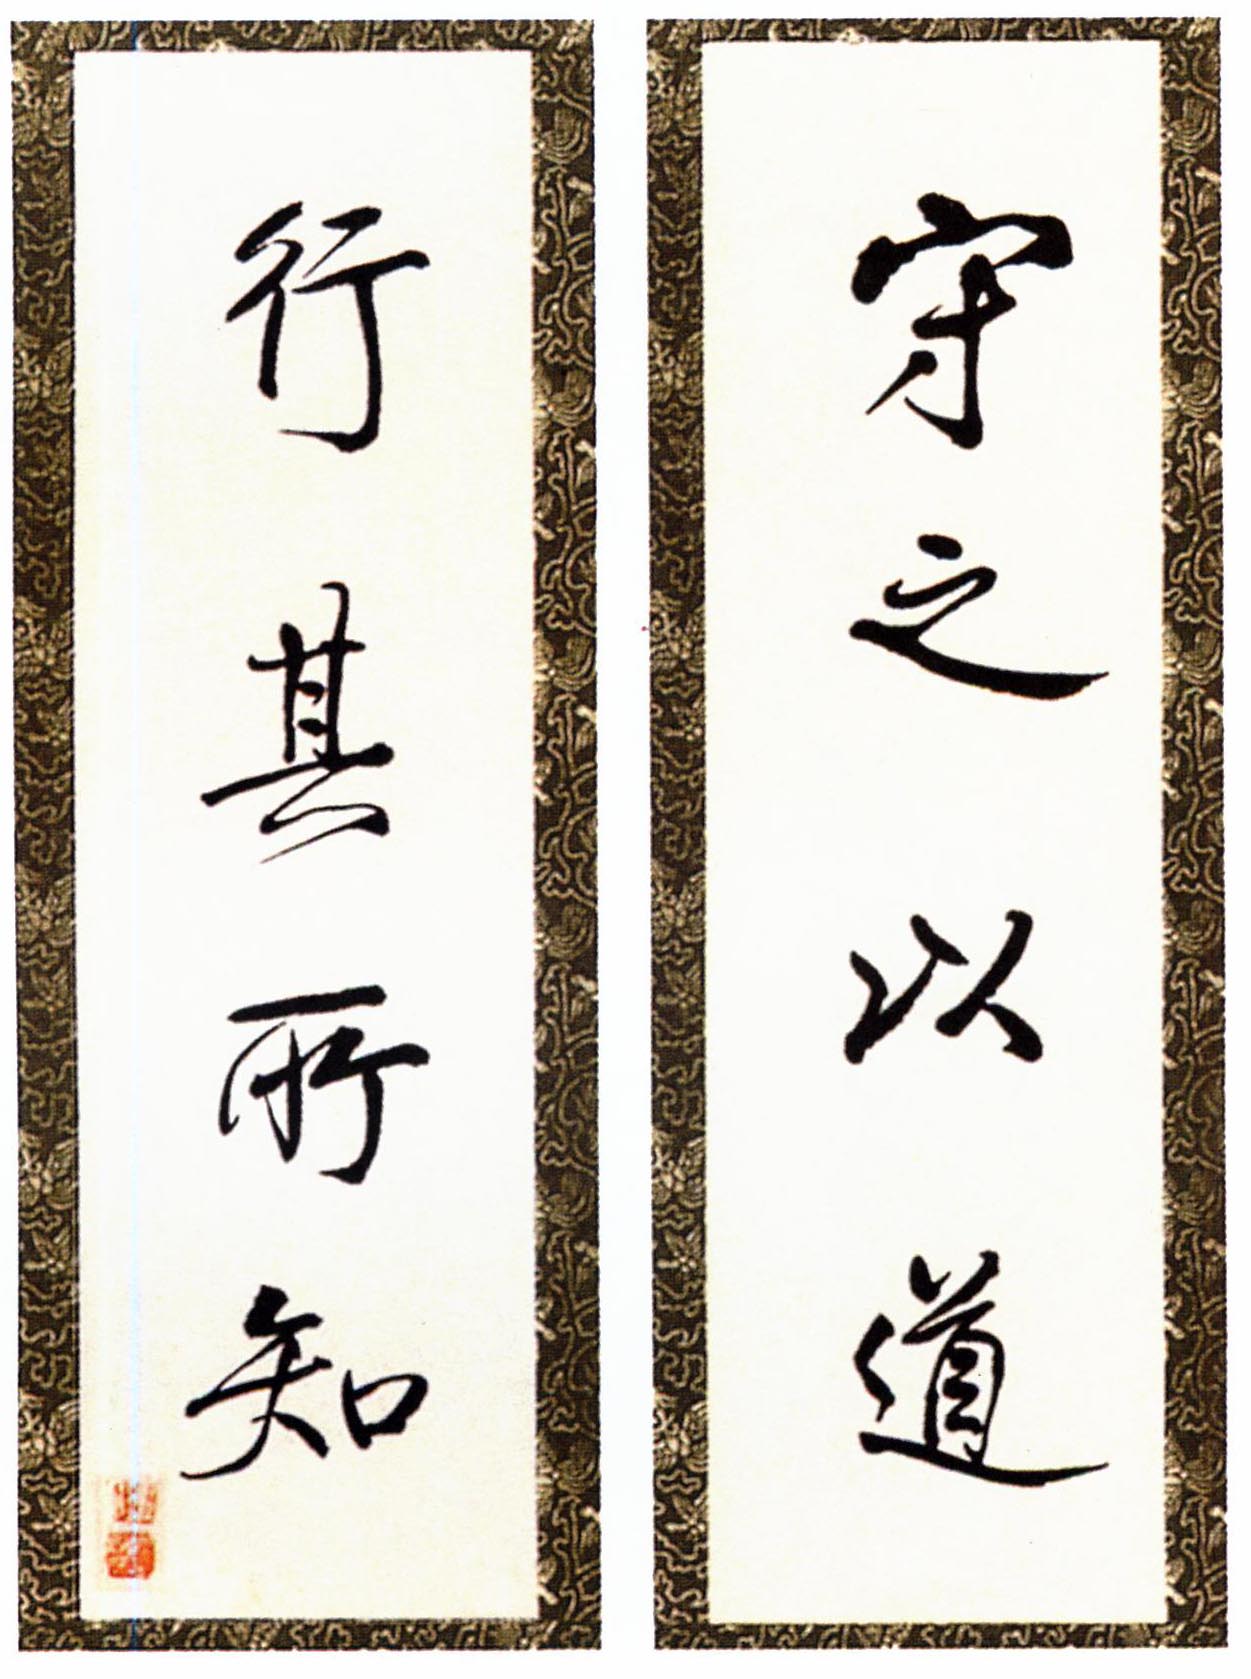 守之以道
行其所知